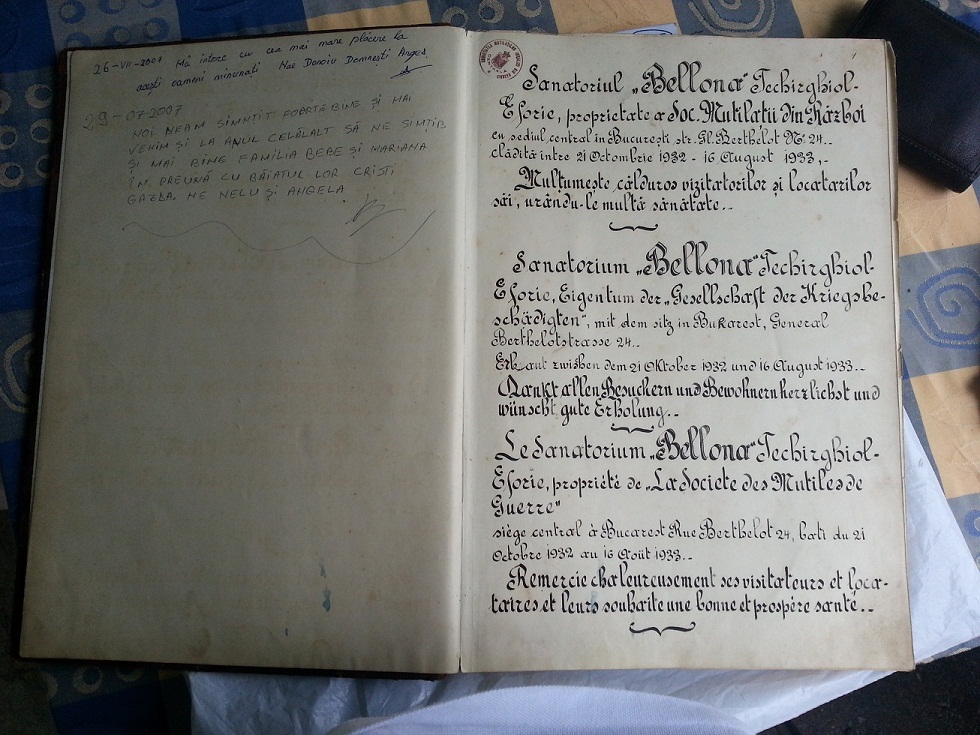 26-VII-2007 Mă întorc cu cea mai mare plăcere la
acești oameni minunați Nae Danciu Domnești Argeș
29-07-2007
NOI NEAM SIMȚIT FOARTE BINE ȘI MAI
VENIM ȘI LA ANUL CELĂLALT SĂ NE SIMȚIB
ȘI MAI BINE FAMILIA BEBE ȘI MARIANA
ÎM PREUNĂ CU BĂIATUL LOR CRISTI
GAZDA. NE NELU ȘI ANGELA
Sanatoriul „Bellona" Techirghiol-
Eforie, proprietate a Soc. Mutilații din Război
cu sediul central în București str. Gl. Berthelot Nº 24..
clădită între 21 Octombrie 1932 - 16 August 1933,-
Mulțumește călduros vizitatorilor și locatarilor
săi, urându-le multă sănătate..
Sanatorium „Bellona" Techirghiol-
Eforie, Eigentum der „Gesellschaft der Kriegsbe-
schädigten", mit dem sitz in Bukarest, General
Berthelotstrasse 24..
Erbaut zwishen dem 21 Oktober 1932 und 16 August 1933..
Dankt allen Besuchern und Bewohnern herzlichst und
wünscht gute Erholung..
Le Sanatorium „Bellona" Techirghiol-
Eforie, propriété de „La Societe des Mutiles de
Guerre"
siège central à Bucarest Rue Berthelot 24, bati du 21
Octobre 1932 au 16 Août 1933..
Remercie chaleureusement ses visitateurs et loca-
taires et leurs souhaite une bonne et prospère santé..